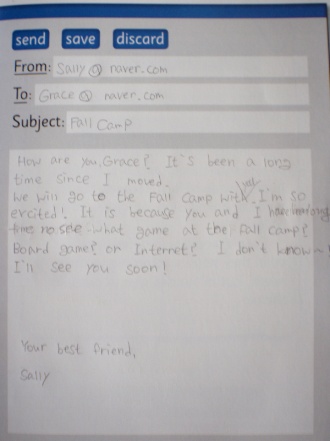 send save discard
From: Sally@ naver.com
To: Grace@ naver.com
Subject: Fall Camp
How are you, Grace? It's been a long
time since I moved.
We will go to the Fall Camp with you. I'm so
excited! It is because you and I have long
time no see. What game at the fall camp?
Board game? or Internet? I don't know~!
I'll see you soon!
Your best friend,
Sally